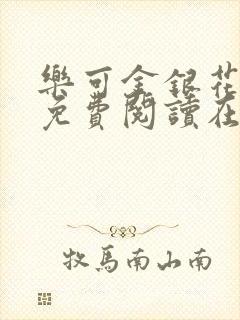 樂可金銀花
免費閱讀在
牧馬南山南